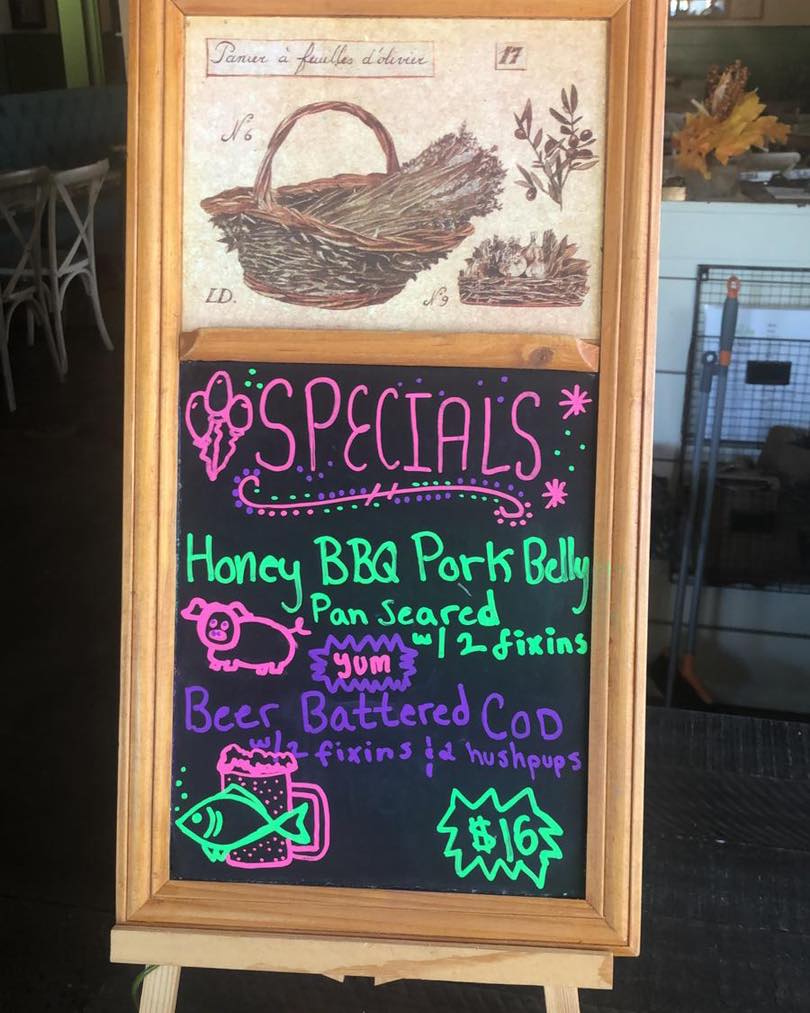 Panier à feuilles d'olivier
17
N°6
LD.
N°9
SPECIALS
Honey BBQ Pork Belly
Pan Seared
w/ 2 fixins
yum
Beer Battered COD
w/2 fixins & 2 hushpups
$16